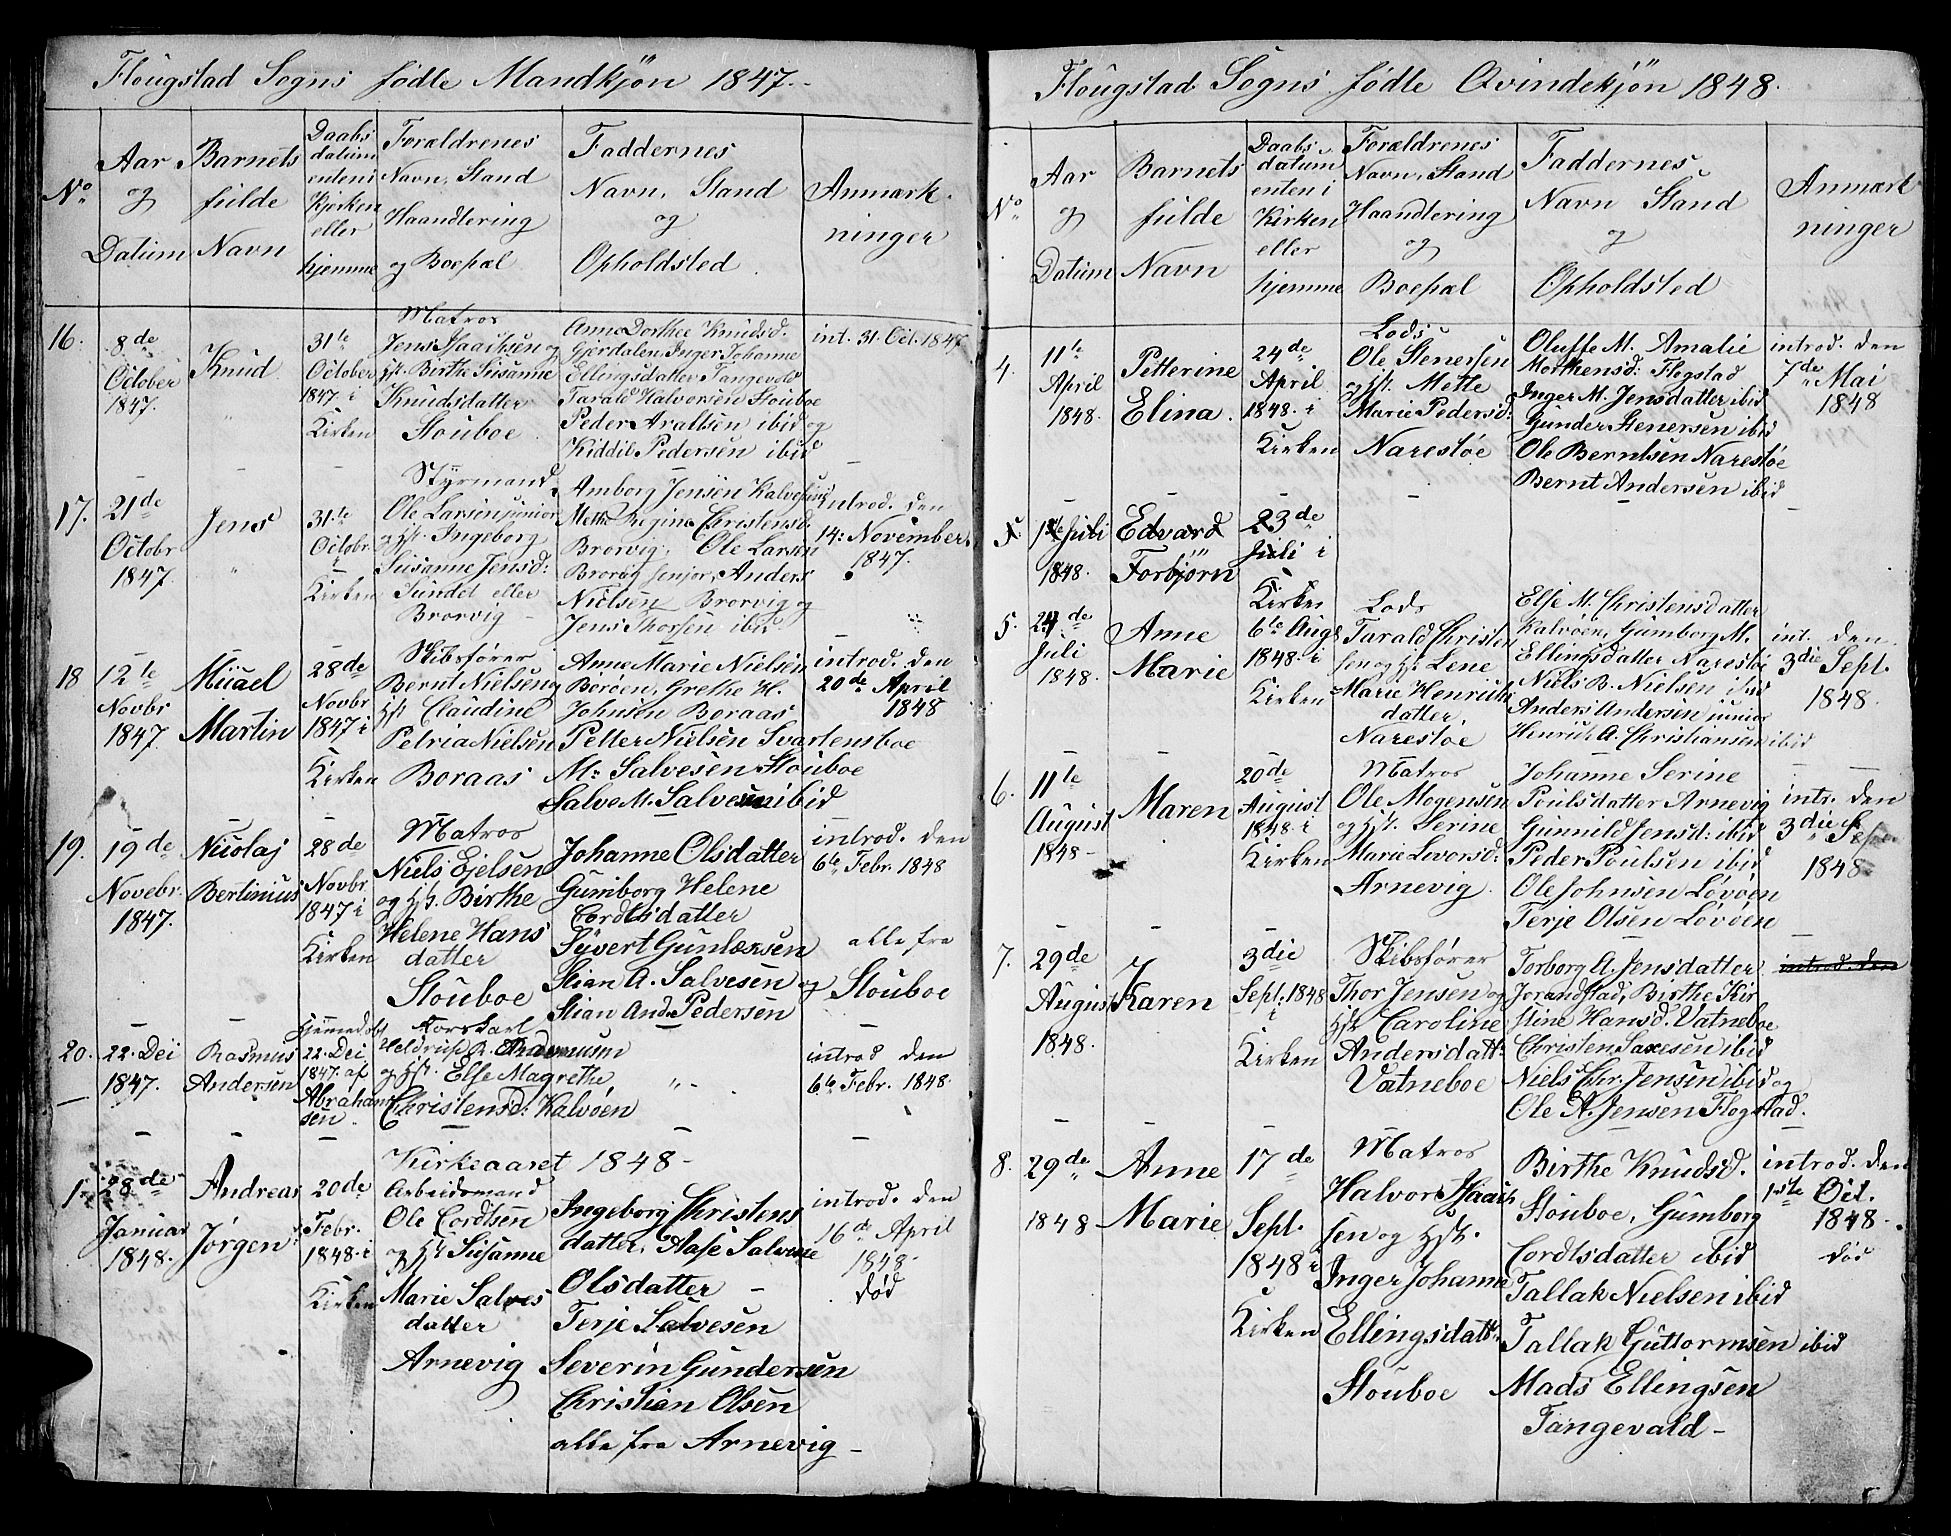 Flougstad Sogns fødte Mandkjøn 1847.
No
Aar
og
Datum
Barnets
fulde
Navn
Daabs
datum
enten i
Kjerken
eller
hjemme
Forældrenes
Navn, Stand
Haandtering
og Boepæl
Faddernes
Navn, Stand
og
Opholdsted
Anmærk-
ninger
16.
8de
October
1847.
Knud
31te
October
1847. i
Kirken
Matros
Jens Isaachsen og
Hst. Birthe Susanne
Knudsdatter
Stouboe
Anne Dorthee Knudsd.
Gjerdalen, Inger Johanne
Ellingsdatter Tangevold
Tarald Halvorsen Stouboe
Peder Araltsen ibid og
Kiddil Pedersen ibid
int. 31. Oct. 1847
17.
21de
Octobr
1847.
Jens
31.te
Octobr.
i
Kirken
Styrmand
Ole Larsen junior
og Hst. Ingeborg
Susanne Jensd:
Sundet eller
Brorvig
Amborg Jensen Kalvesund
Methe Regine Christensd.
Brorvig, Ole Larsen
Brorvig senjor, Anders
Nielsen Brorvig og
Jens Thorsen ibid
introd. den
14: November
1847.
18
12te
Novbr
1847.
Micael
Martin
28de
Novbr
1847 i
Kirken
Skibsfører
Bernt Nielsen og
Hst Claudine
Petria Nielsen
Boraas
Anne Marie Nielsen
Borøen, Grethe H.
Johnsen Boraas
Petter Nielsen Svartensboe
M: Salvesen Stouboe
Salve M. Salvesen ibid
introd. den
20de April
1848
19.
19de
Novebr.
1847.
Nicolaj
Bertinius
28de
Novbr.
1847 i
Kirken
Matros
Niels Ejelsen
og Hst. Birthe
Helene Hans
datter
Stouboe
Johanne Olsdatter
Gumborg Helene
Cordtsdatter
Syvert Gunlexsen
Stian A. Salvesen og
Stian And. Pedersen
introd. den
6te Febr. 1848
alle fra
Stouboe
20.
22. Dec
1847.
Rasmus
Andersen
Hjemmedøbt
22. Dec
1847. af
Abraham
sen.
Korskarl
R. Rasmusen
og Hst. Else Magrethe
Christensd: Kalvøen
introd den
6te Febr. 1848.
Kirkeaaret 1848
1.
28de
Januar
1848.
Andreas
Jørgen
20de
Febr.
1848. i
Kirken
Arbeidsmand
Ole Cordtsen
og Hst Susanne
Marie Salves
datter
Arnevig
Ingeborg Christens
datter, Aase Salvesen
Olsdatter
Terje Salvesen
Severin Gundersen
Christian Olsen
alle fra Arnevig
introd. den
16de April
1848
død
Flougstad Sogns fødte Qvindekjøn 1848.
No
Aar
og
Datum
Barnets
fulde
Navn
Daabs-
datum
enten i
Kirken
eller
hjemme
Forældrenes
Navn, Stand
Haandtering
og
Boepæl
Faddernes
Navn Stand
og
Opholdsted
Anmærk
ninger
4.
11te
April
1848.
Petterine
Elina.
24de
April
1848. i
Kirken
Lods
Ole Stenersen
og Hst. Mette
Marie Pedersd:
Narestøe
Oluffe M. Amalie
Morthensd: Flogstad
Inger M. Jensdatter ibid
Gunder Stenersen ibid
Ole Berntsen Narestøe
Bernt Andersen ibid
introd. den
7de Mai
1848
5.
1ste Juli
1848.
Edvard
Torbjørn
23de
Juli i
Kirken
5.
24de
Juli
1848.
Anne
Marie
6te Aug.
1848. i
Kirken
Lods
Tarald Christen
sen og Hst Lene
Marie Henriks
datter,
Narestoe
Else M. Christensdatter
Kalvøen, Gumborg M.
Ellingsdatter Narestøe
Niels B. Nielsen ibid
Anders Andersen junior
Henrik A. Christiansen ibid
int. den
3die Sept.
1848.
6.
11te
August
1848
Maren
20de
August
1848. i
Kirken
Matros
Ole Mogensen
og Hst. Serine
Marie Levorsd:
Arnevig.
Johanne Serine
Poulsdatter Arnevig
Gunnild Jensd. ibid
Peder Poulsen ibid
Ole Johnsen Løvøen
Terje Olsen Løvøen
intr. den
3die
1848
7.
29de
August
1848.
Karen
3die
Sept. 1848
i
Kirken
Skibsfører
Thor Jensen og
Hst Caroline
Andersdatt:
Vatneboe
Torborg A. Jensdatter
Jorandstad, Birthe Kir
stine Hansd. Vatneboe
Christen Saxesen ibid
Niels Chr. Jensen ibid og
Ole A. Jensen Flogstad.
introd. den
8.
29de
1848
Anne
Marie
17de
Sept.
1848 i
Kirken
Matros
Halvor Isaach
sen og Hst.
Inger Johanne
Ellingsdatt.
Stouboe
Birthe Knudsd.
Stouboe, Gumborg
Cordtsdatter ibid
Tallak Nielsen ibid
Tallak Guttormsen ibid
Mads Ellingsen
Tangevald
introd. den
1ste Oct.
1848.
død